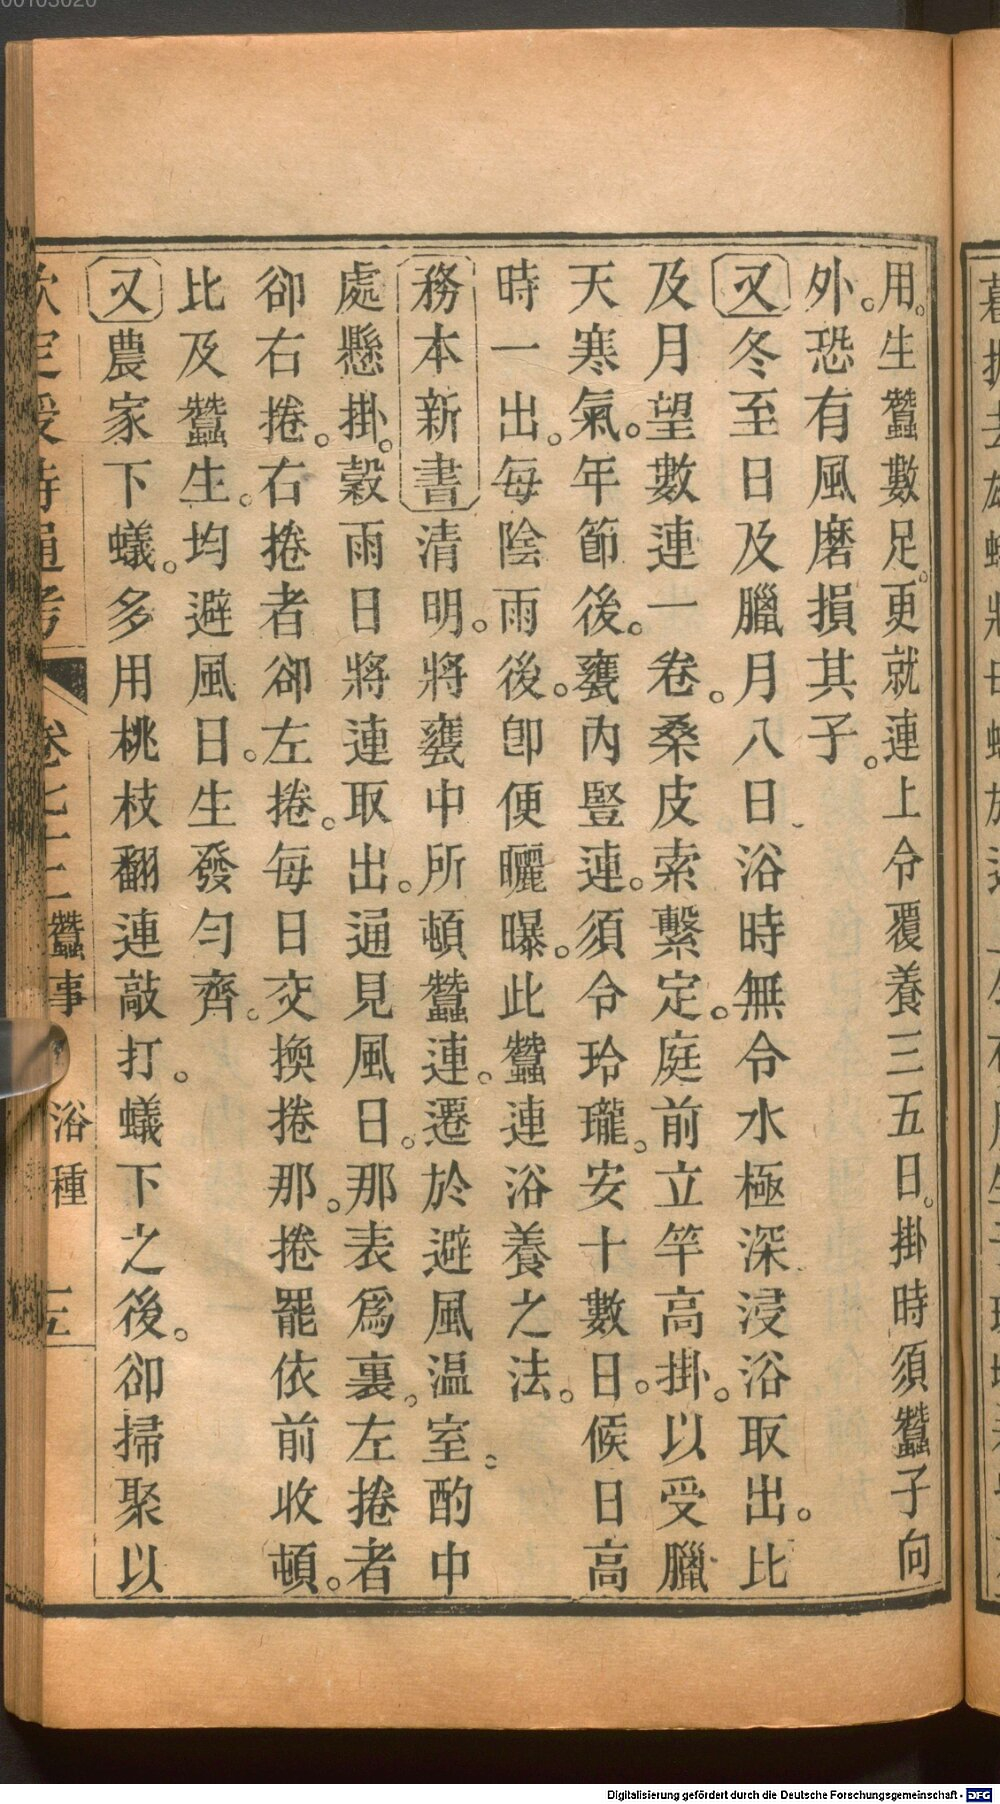 用。生蠶數足。更就連上令覆養三五日。掛時須蠶子向
外。恐有風磨損其子。
又冬至日及臘月八日浴時無令水極深浸浴取出。比
及月望數連一卷。桑皮索繫定。庭前立竿高掛。以受臘
天寒氣。年節後。甕內豎連。須令玲瓏。安十數日。候日高
時一出。每陰雨後。卽便曬曝。此蠶連浴養之法。
務本新書清明。將甕中所頓蠶連。遷於避風温室。酌中
處懸掛。穀雨日將連取出。通見風日。那表爲裏。左捲者
卻右捲。右捲者卻左捲。每日交換捲那。捲罷依前收頓。
比及蠶生。均避風日。生發勻齊。
又農家下蟻。多用桃枝翻連敲打。蟻下之後。卻掃聚以
欽定授時通考 卷七十二 蠶事 浴種
00103020
Digitalisierung gefördert durch die Deutsche Forschungsgemeinschaft - DFG